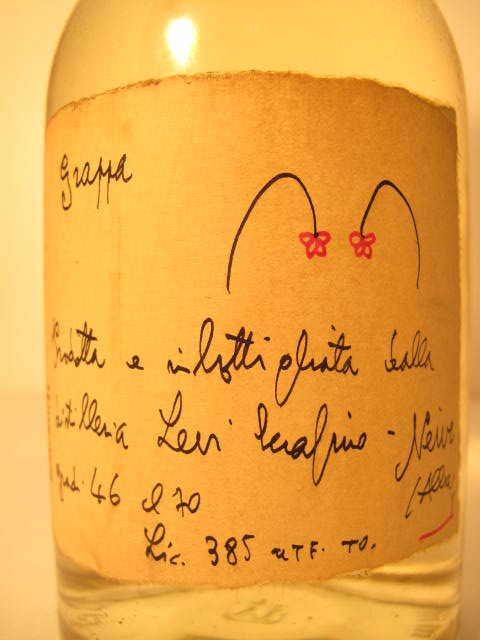 Grappa
Prodotta e imbottigliata dalla
distilleria Levi Serafino - Neive
gradi 46 cl 70 (Alba)
Lic. 385 UTF. TO.